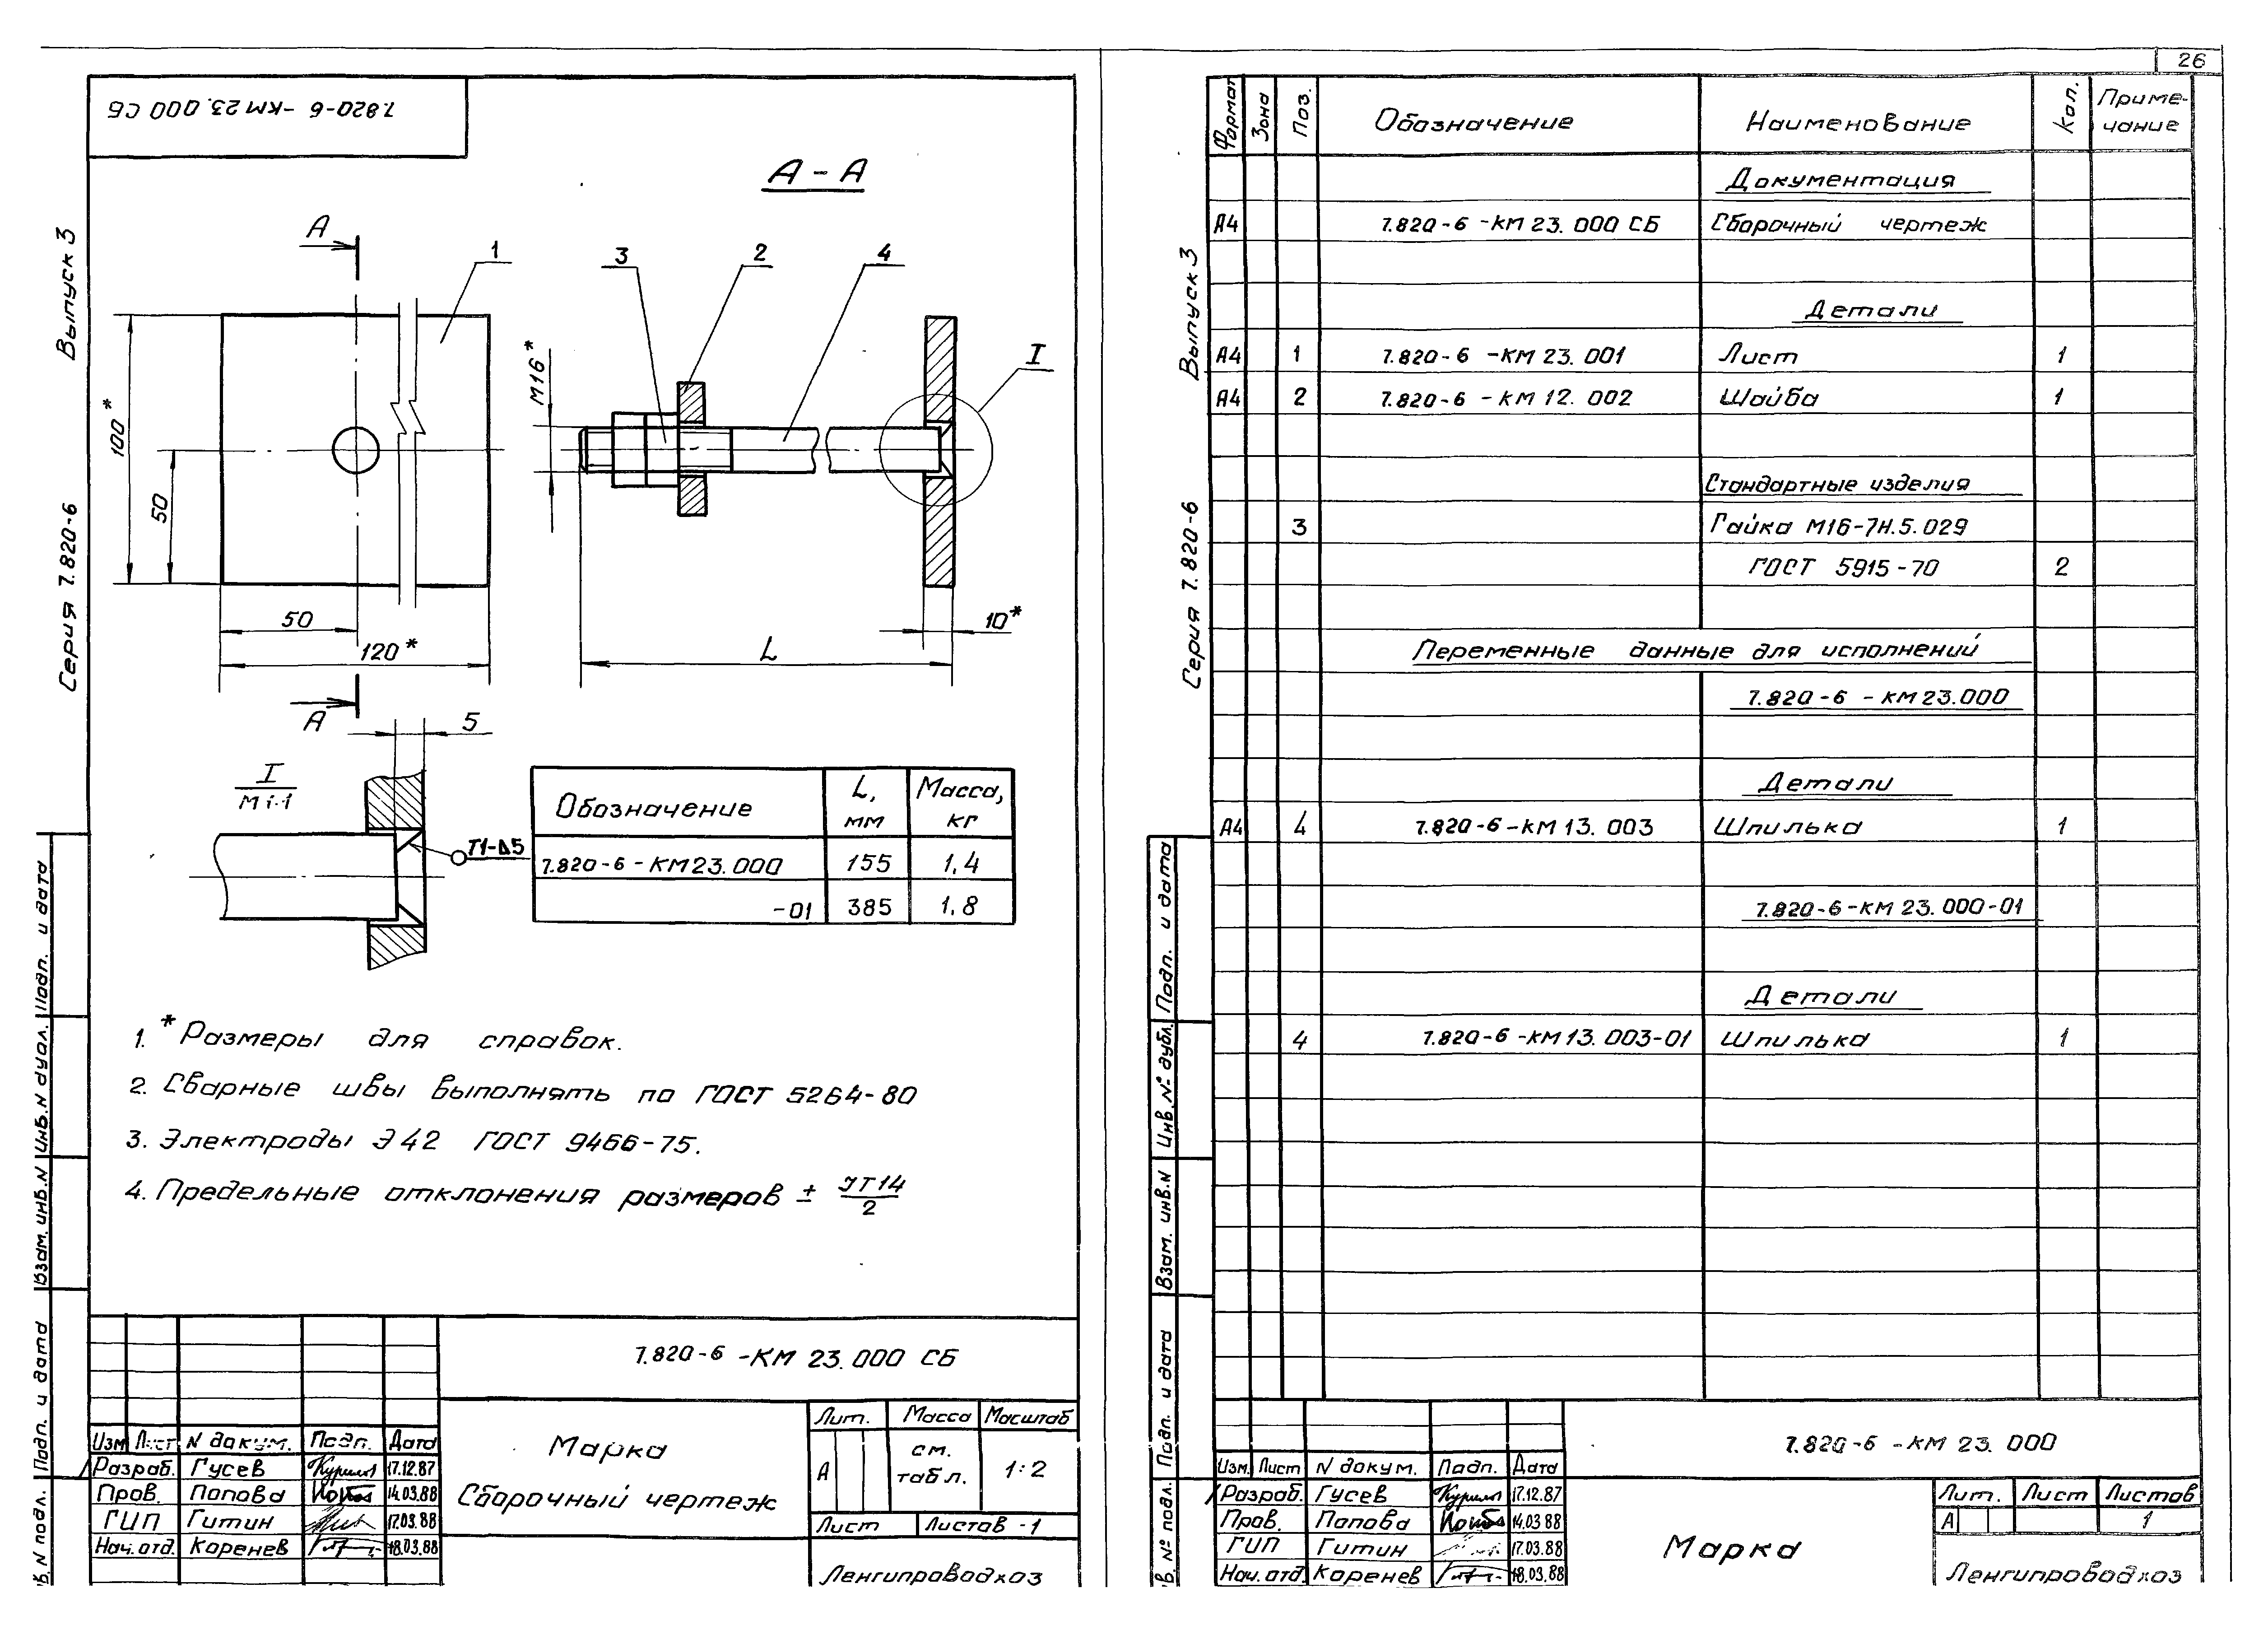 26
7.820-6 -КМ 23. 000 СБ
Выпуск 3
Серия 7.820-6
А - А
А
1
3
2
4
I
100*
50
М16*
50
120*
10*
L
А
5
I
М 1:1
Т1-Δ5
Обозначение L, мм Масса, кг
7.820-6 - КМ 23.000 155 1,4
-01 385 1,8
1. * Размеры для справок.
2. Сварные швы выполнять по ГОСТ 5264-80
3. Электроды Э42 ГОСТ 9466-75.
4. Предельные отклонения размеров ± JT14/2
Подп. и дата
Инв.N дубл.
Взам. инв.N
Подп. и дата
в. N подл.
7.820-6 -КМ 23. 000 СБ
Изм Лист N докум. Подп. Дата
Разраб. Гусев 17.12.87
Пров. Попова 14.03.88
ГИП Гитин 17.03.88
Нач.отд. Коренев 18.03.88
Марка
Сборочный чертеж
Лит. Масса Масштаб
А см. табл. 1:2
Лист Листов -1
Ленгипроводхоз
Выпуск 3
Серия 7.820-6
Формат Зона Поз. Обозначение Наименование Кол. Приме-
чание
Документация
А4 7.820-6 -КМ 23. 000 СБ Сборочный чертеж
Детали
А4 1 7.820-6 -КМ 23. 001 Лист 1
А4 2 7.820-6 - КМ 12. 002 Шайба 1
Стандартные изделия
3 Гайка М16-7Н.5.029
ГОСТ 5915-70 2
Переменные данные для исполнений
7.820-6 - КМ 23.000
Детали
А4 4 7.820-6 -КМ 13. 003 Шпилька 1
7.820-6-КМ 23. 000-01
Детали
4 7.820-6 -КМ 13. 003-01 Шпилька 1
Подп. и дата
Инв. № дубл.
Взам. инв.N
Подп. и дата
в. № подл.
7.820-6 -КМ 23. 000
Изм. Лист N докум. Подп. Дата
Разраб. Гусев 17.12.87
Пров. Попова 14.03.88
ГИП Гитин 17.03.88
Нач. отд. Коренев 18.03.88
Марка
Лит. Лист Листов
А 1
Ленгипроводхоз